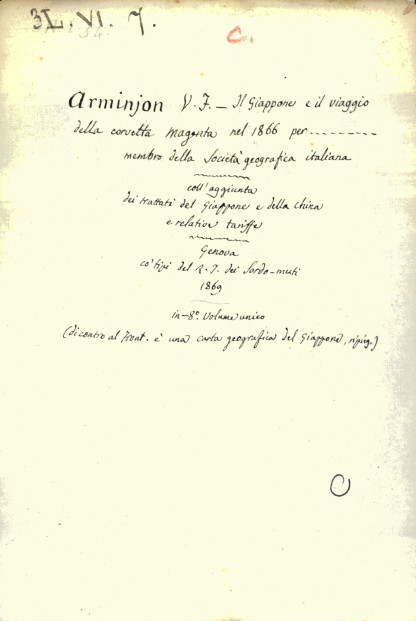 3L. VI. 7.
C.
Arminjon V. F. _ Il Giappone e il viaggio
della corvetta Magenta nel 1866 per --------
membro della Società geografica italiana
coll'aggiunta
dei trattati del Giappone e della China
e relative tariffe
Genova
co' tipi del R. I. dei Sordo-muti
1869
in-8°. Volume unico
(di contro al Front. è una carta geografica del Giappone, ripieg.)
C